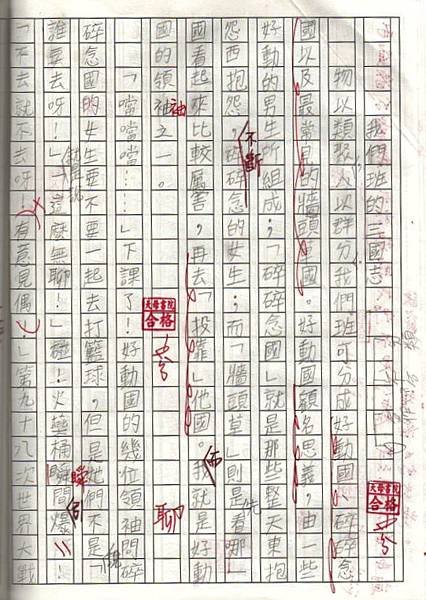 我們班的三國志
物以類聚人以群分我們班可分成好動國、碎碎念
國以及最常見的牆頭草國。好動國顧名思義，由一些
好動的男生所組成；「碎碎念國」就是那些整天東抱
怨西抱怨，不斷碎碎念的女生；而「牆頭草」則是看哪一
國看起來比較厲害，再去「投靠」他國。而我就是好動
國的領袖之一。
「噹噹噹……」下課了！好動國的幾位領袖問碎
碎念國的女生要不要一起去打籃球，但是她們不是「
誰要去呀！」就是說「這麼無聊！」碰！火藥桶瞬間爆
「不去就不去呀！有意見偶！」第九十八次世界大戰
天母書院
合格
天母書院
合格
袖
瞬
聊